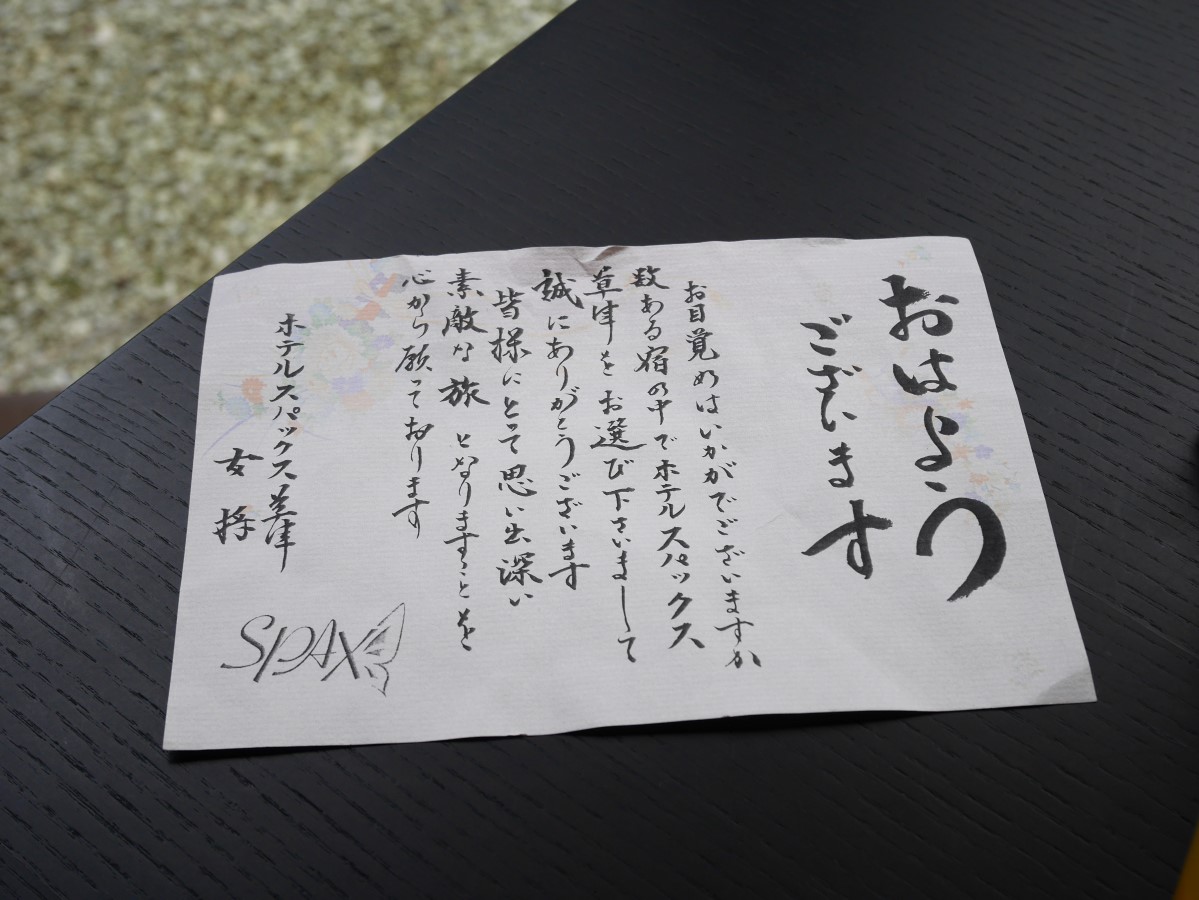 おはよう
ございます
お目覚めはいかがでございますか
数ある宿の中でホテルスパックス
草津をお選び下さいまして
誠にありがとうございます
皆様にとって思い出深い
素敵な旅となりますことを
心から願っております
ホテルスパックス草津
女将
SPAX